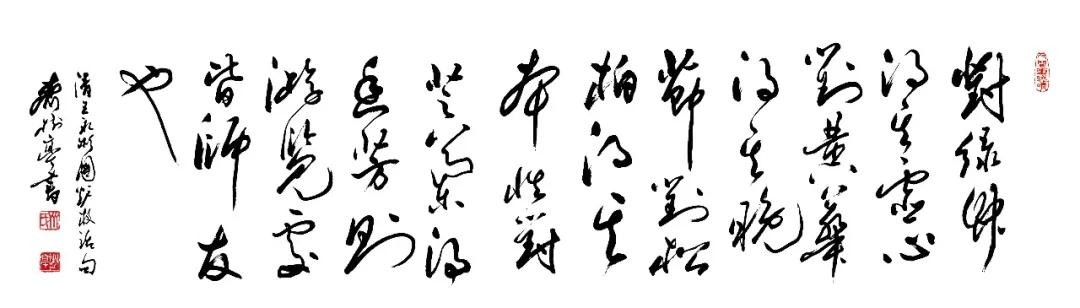 對绿竹
得其虚心
對黄華
得其晚
節對松
柏得其
本性對
芝蘭得
芳則
游覽處
皆師友
也
清王永彬圍炉夜话句
樹亭書